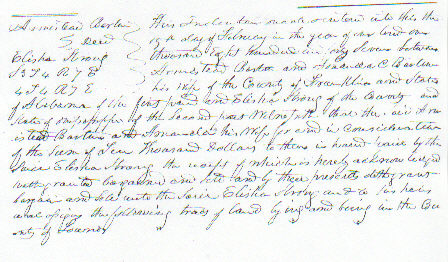 Armistead Barton } This Indenture made & entered into this the
} Deed day of February in the year of our Lord one
Elisha Strong } thousand Eight hundred and forty seven between
S 3 T 4 R 7 E Armistead Barton and Amanda C Barton
4 T 4 R 7 E his wife of the County of Franklin and State
of Alabama of the first part and Elisha Strong of the County and
State of Mississippi of the Second part Witnesseth that the said Arm
istead Barton and Amanda his wife for and in consideration
of the Sum of Two Thousand Dollars to them in hand paid by the
said Elisha Strong the receipt of which is hereby acknowledged
hath granted bargained and sold and by these presents doth grant
bargain and sell unto the said Elisha Strong and to his heirs
and assigns the following tract of land lying and being in the Cou
nty of